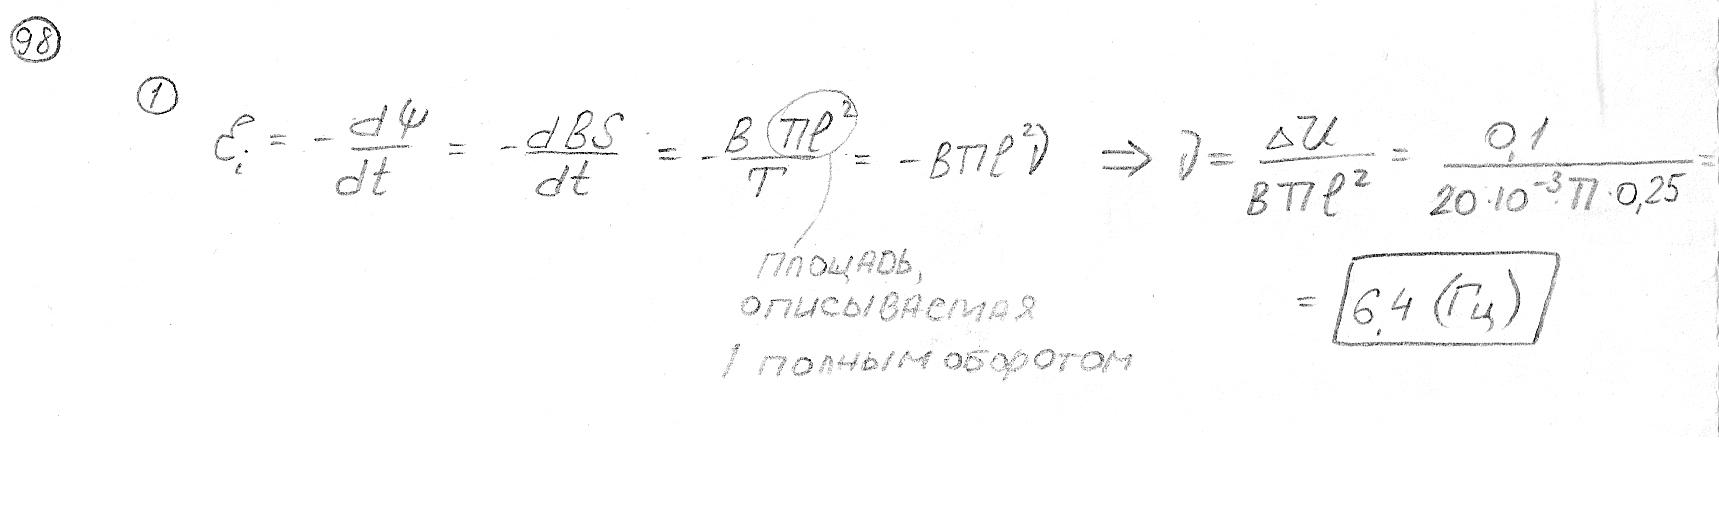 98
1
ℰi = - dΨ/dt = - dBS/dt = - BПl²/T = - BПl²ν ⇒ ν = ΔU/BПl² = 0,1/20·10⁻³·П·0,25 =
площадь,
описываемая
1 полным оборотом
= 6,4 (Гц)